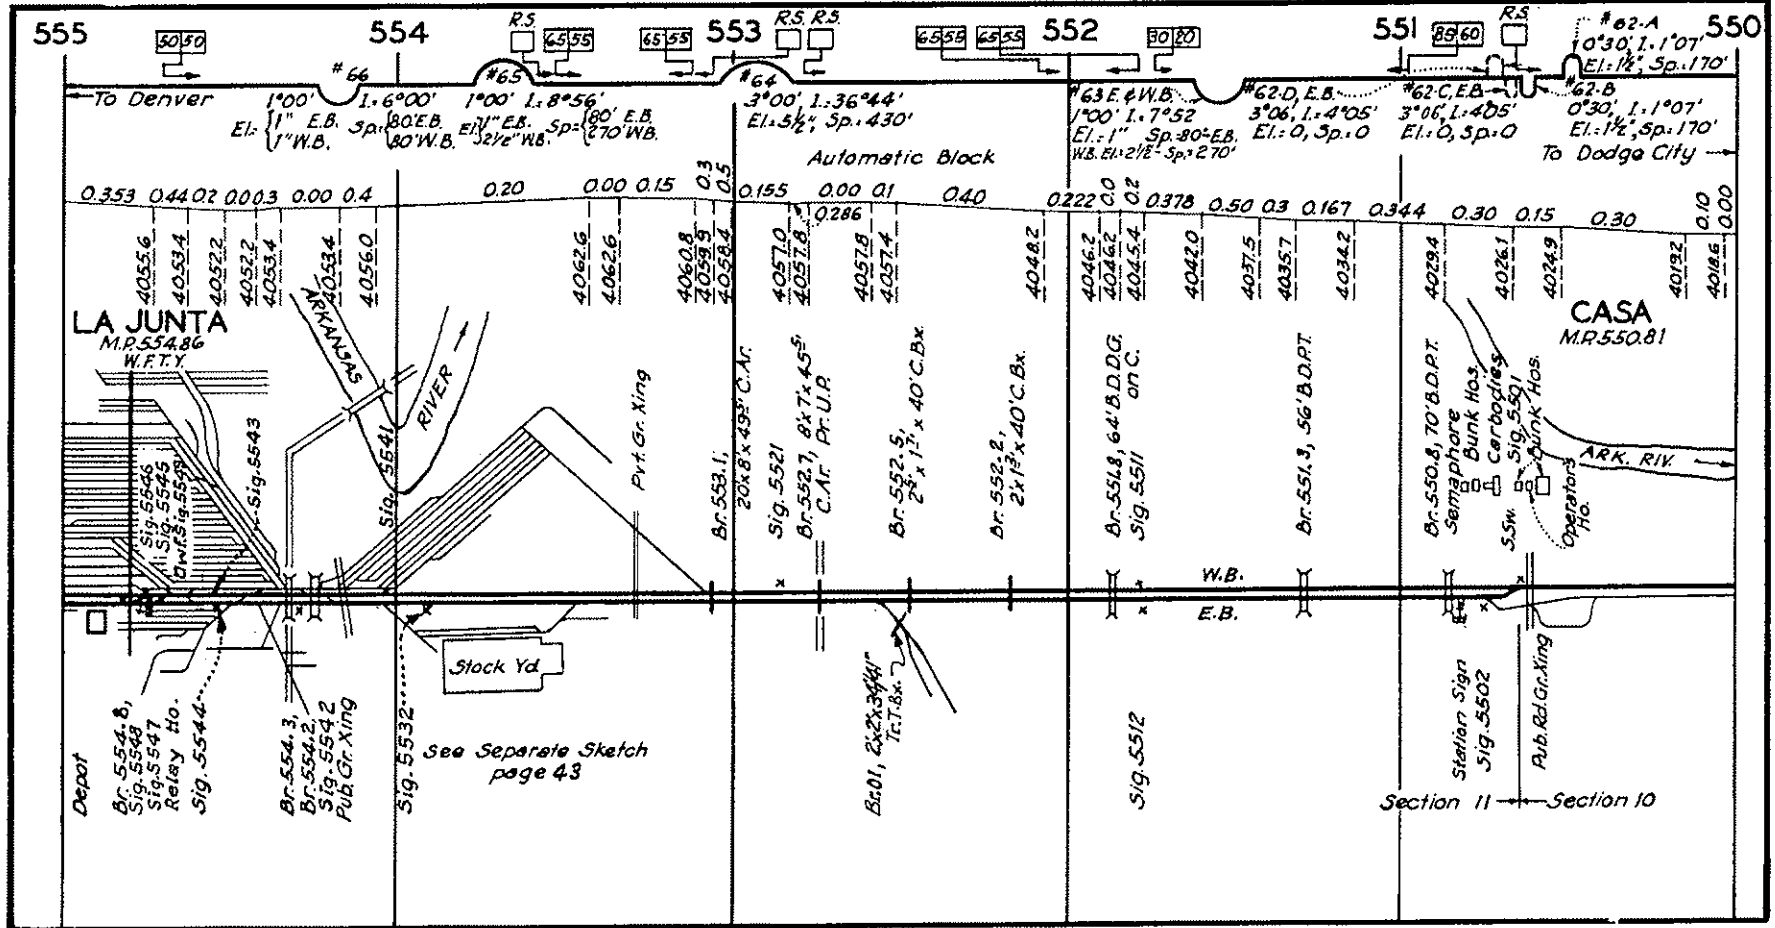 555
554
553
552
551
550
50 50
R.S.
65 55
65 55
R.S. R.S.
65 55
65 55
30 20
85 60
R.S.
#62-A
0°30', I.=1°07'
El.=1½", Sp.=170'
#66
#65
#64
To Denver
1°00' I.=6°00'
El.= {1" E.B. 1" W.B. Sp.= {80' E.B. 80' W.B.
1°00' I.=8°56'
El.= {1" E.B. 2½" W.B. Sp.= {80' E.B. 270' W.B.
3°00', I.=36°44'
El.=5½", Sp.=430'
#63 E. & W.B.
1°00' I.=7°52
El.=1" Sp.=80'-E.B.
W.B. El.=2½"- Sp.=270'
#62-D, E.B.
3°06', I.=4°05'
El.=0, Sp.=0
#62-C, E.B.
3°06', I.=4°05'
El.=0, Sp.=0
#62-B
0°30', I.=1°07'
El.=1½", Sp.=170'
Automatic Block
To Dodge City
0.353 0.44 0.2 0.0 0.3 0.00 0.4 0.20 0.00 0.15 0.3 0.5 0.155 0.00 0.1 0.40 0.222 0.0 0.2 0.378 0.50 0.3 0.167 0.344 0.30 0.15 0.30 0.10 0.00
0.286
4055.6
4053.4
4052.2
4052.2
4053.4
4053.4
4056.0
4062.6
4062.6
4060.8
4059.9
4058.4
4057.0
4057.8
4057.8
4057.4
4048.2
4046.2
4046.2
4045.4
4042.0
4037.5
4035.7
4034.2
4029.4
4026.1
4024.9
4019.2
4018.6
LA JUNTA
M.P. 554.86
W.F.T.Y.
ARKANSAS
RIVER
CASA
M.P. 550.81
Sig. 5546
Sig. 5545
Sig. 5543
Sig. 5541
Pvt. Gr. Xing
Br. 553.1,
20'x 8'x 49' C. Ar.
Sig. 5521
Br. 552.7, 8'x 7'x 45'
C. Ar., Pr. U.P.
Br. 552.5,
x 40' C. Bx.
Br. 552.2,
x 40' C. Bx.
Br. 551.8, 64' B.D.D.G.
on C.
Sig. 5511
Br. 551.3, 56' B.D.P.T.
Br. 550.8, 70' B.D.P.T.
Semaphore
Bunk Hos.
Carbodies
Sig. 5501
Bunk Hos.
S.Sw.
Operators
Ho.
ARK. RIV.
W.B.
E.B.
Stock Yd
Depot
Br. 554.8,
Sig. 5548
Sig. 5547
Relay Ho.
Sig. 5544
Br. 554.3,
Br. 554.2,
Sig. 5542
Pub. Gr. Xing
Sig. 5532
See Separate Sketch
page 43
Br. 01,
Tr. T. Bx.
Sig. 5512
Station Sign
Sig. 5502
Pub. Rd. Gr. Xing
Section 11
Section 10